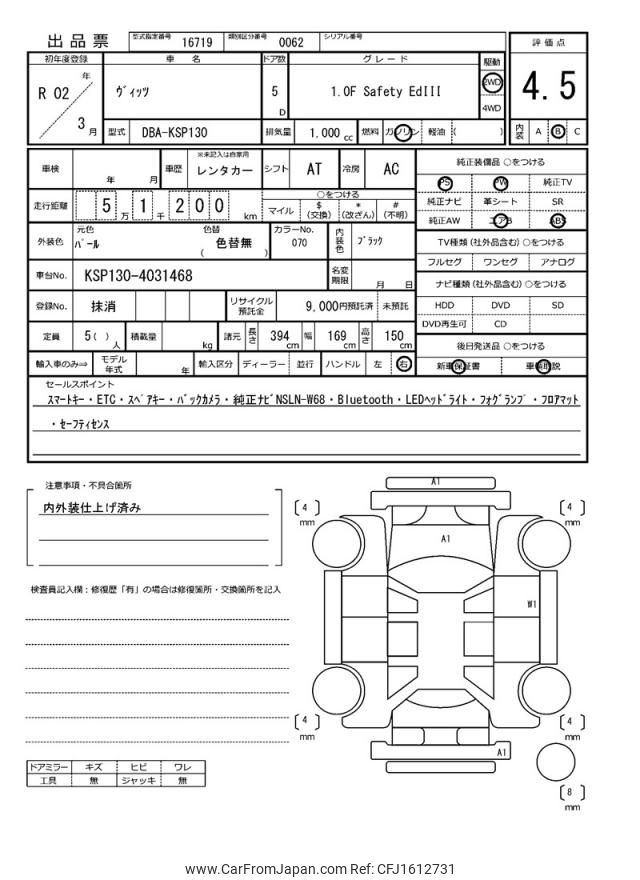 出品票 型式指定番号 16719 類別区分番号 0062 シリアル番号
初年度登録 車名 ドア数 グレード 駆動 評価点
R 02 年 3 月 ヴィッツ 5 D 1.0F Safety EdIII 2WD 4WD 4.5
型式 DBA-KSP130 排気量 1.000 cc 燃料 ガソリン 軽油 ( ) 内装 A B C
車検 年 月 車歴 ※未記入は自家用 レンタカー シフト AT 冷房 AC
走行距離 5 万 1 千 2 0 0 km ○をつける マイル $ (交換) * (改ざん) # (不明)
外装色 元色 パール 色替 ( 色替無 ) カラーNo. 070 内装色 ブラック
車台No. KSP130-4031468 名変期限 月 日
登録No. 抹消 リサイクル預託金 9,000円預託済 未預託
定員 5 ( ) 人 積載量 kg 諸元 長さ 394 cm 幅 169 cm 高さ 150 cm
輸入車のみ⇒ モデル年式 年 輸入区分 ディーラー 並行 ハンドル 左 右
純正装備品 ○をつける
PS PW 純正TV
純正ナビ 革シート SR
純正AW エアB ABS
TV種類 (社外品含む) ○をつける
フルセグ ワンセグ アナログ
ナビ種類 (社外品含む) ○をつける
HDD DVD SD
DVD再生可 CD
後日発送品 ○をつける
新車保証書 車輌取説
セールスポイント
スマートキー・ETC・スペアキー・バックカメラ・純正ナビNSLN-W68・Bluetooth・LEDヘッドライト・フォグランプ・フロアマット
・セーフティセンス
注意事項・不具合箇所
内外装仕上げ済み
検査員記入欄:修復歴「有」の場合は修復箇所・交換箇所を記入
ドアミラー キズ ヒビ ワレ
工具 無 ジャッキ 無
A1
[ 4 ] mm [ 4 ] mm
A1
W1
[ 4 ] mm [ 4 ] mm
A1
[ 8 ] mm
www.CarFromJapan.com Ref: CFJ1612731